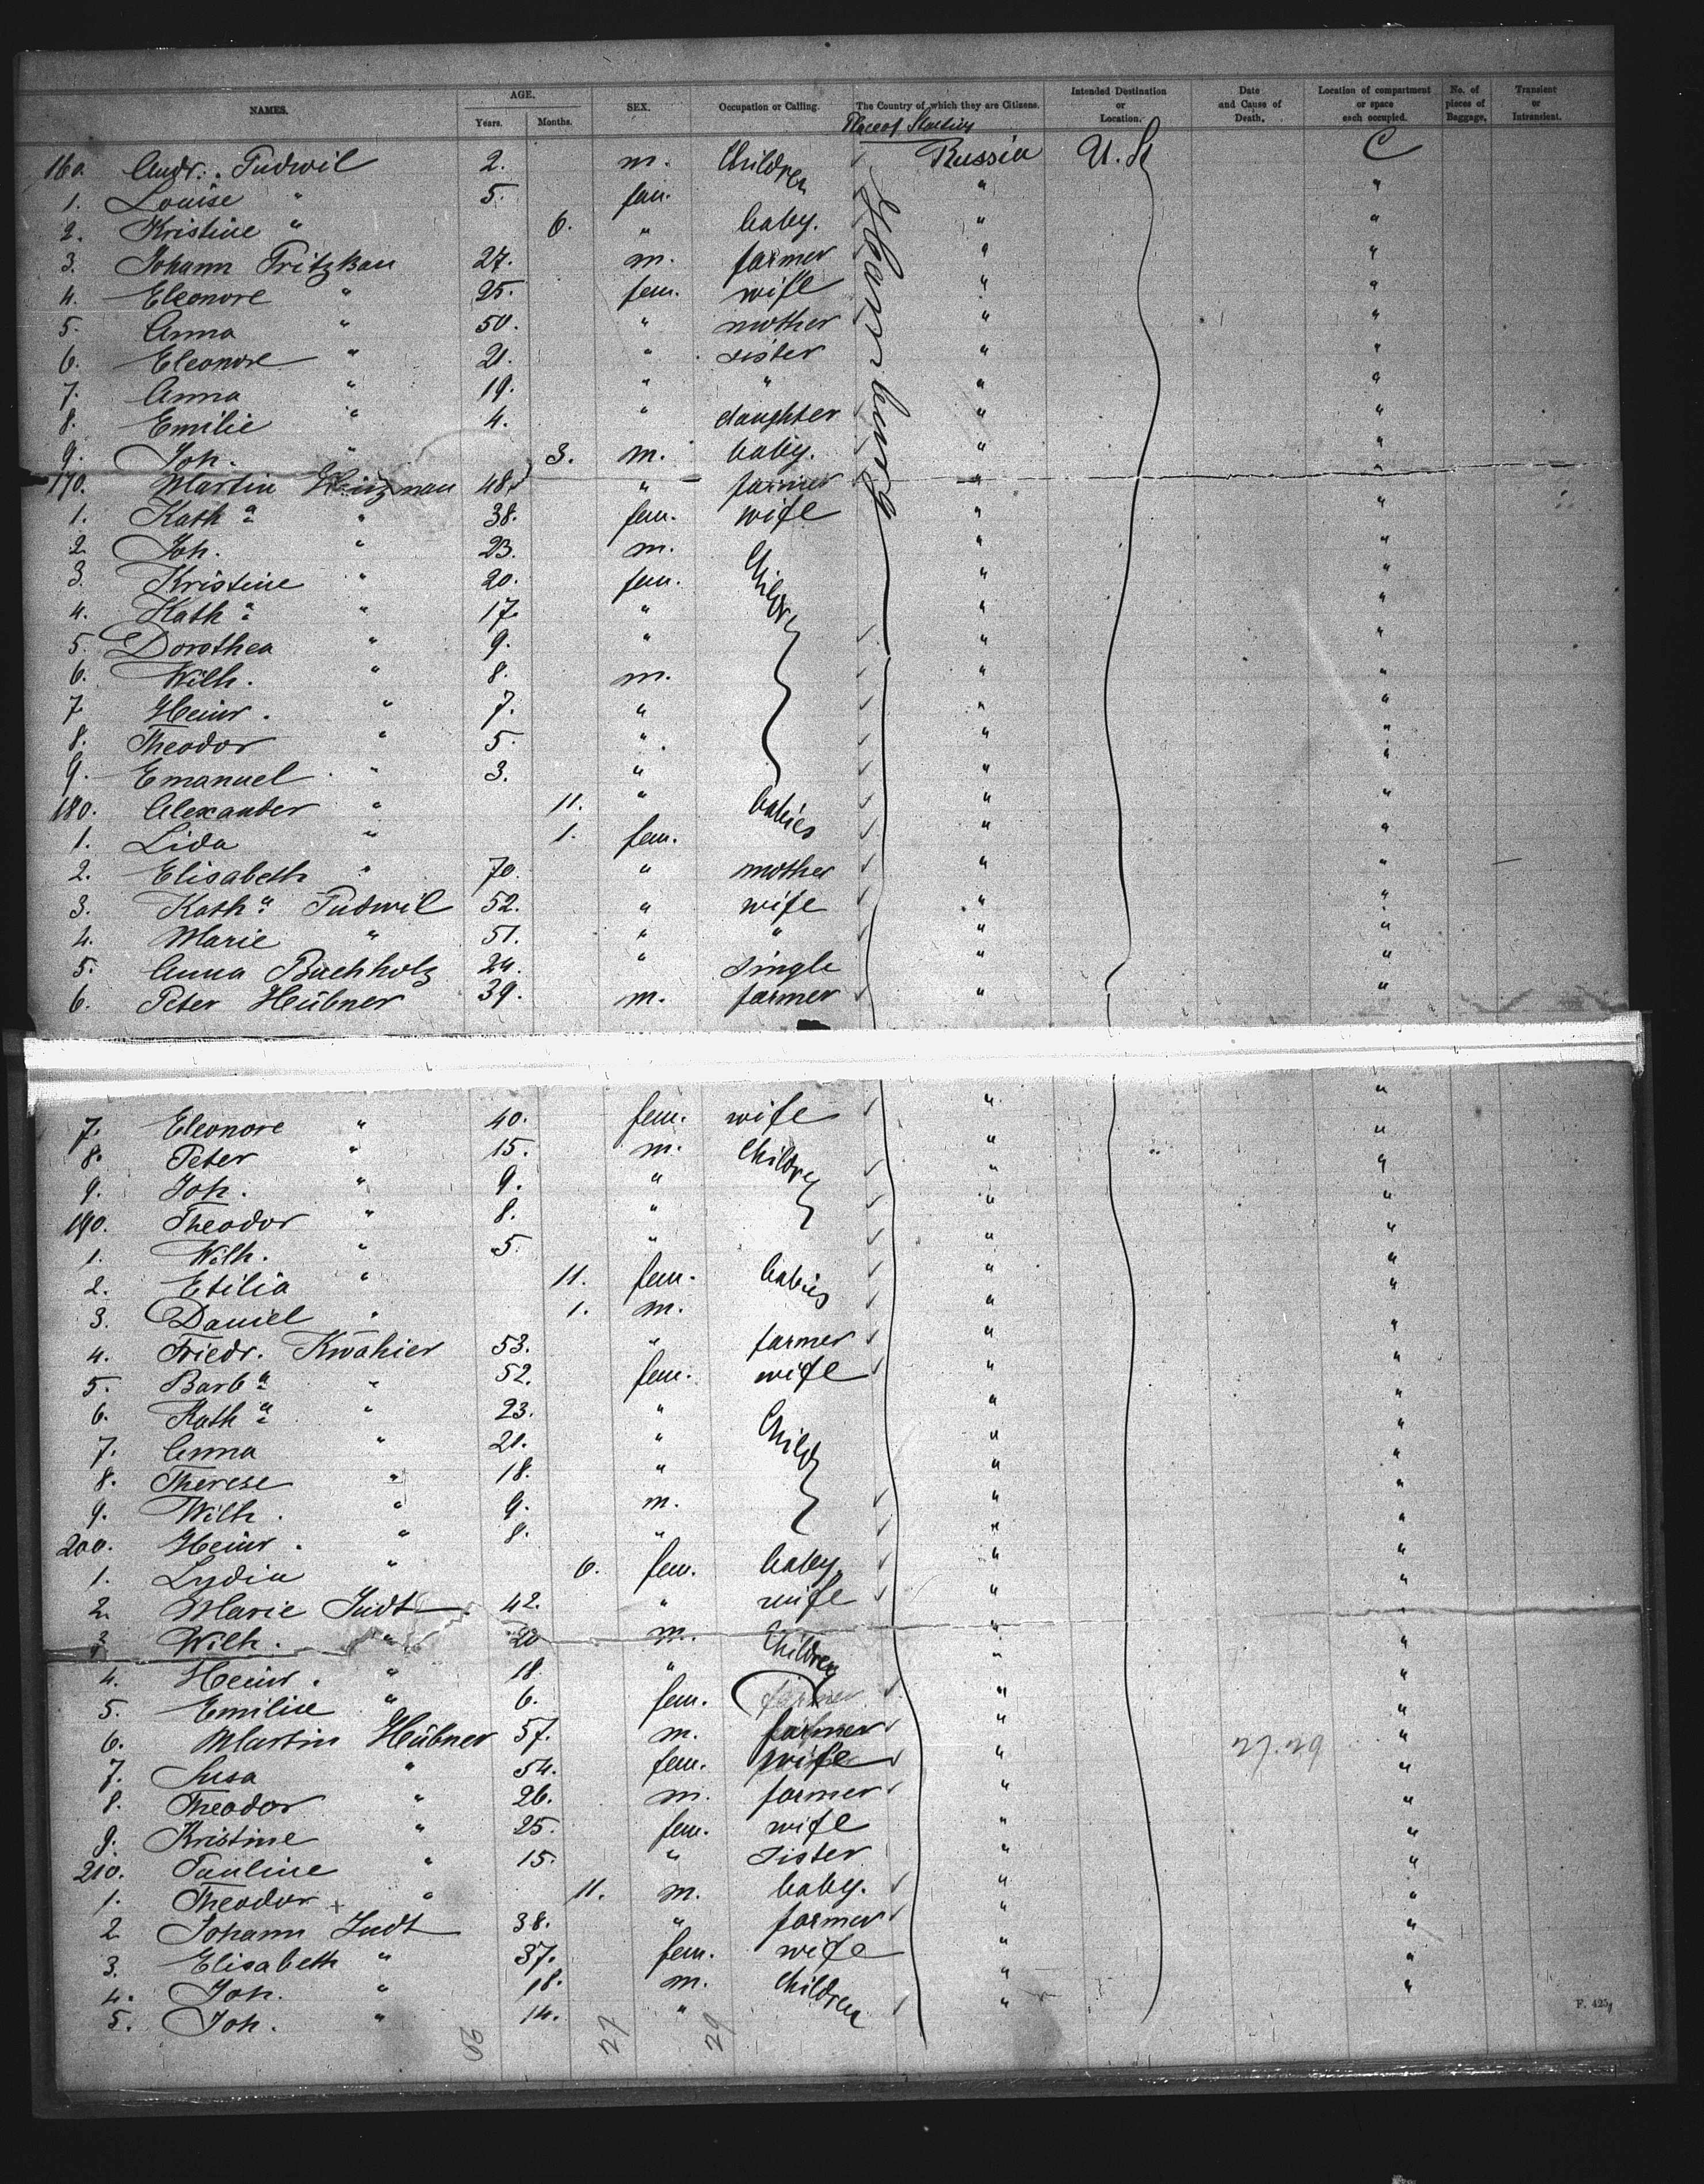 NAMES. AGE. SEX. Occupation or Calling. The Country of which they are Citizens. Intended Destination or Location. Date and Cause of Death. Location of compartment or space each occupied. No. of pieces of Baggage. Transient or Intransient.
Years. Months. Place of Starting
160. Andr. Pudwil 2. m. Children Russia U. S. C
1. Louise " 5. fem. " "
2. Kristine " 6. " baby. " "
3. Johann Pritzkau 27. m. farmer " "
4. Eleonore " 25. fem. wife " "
5. Anna " 50. " mother " "
6. Eleonore " 21. " sister " "
7. Anna " 19. " " " "
8. Emilie " 4. " daughter " "
9. Joh. " 3. m. baby. " "
170. Martin 48. " farmer " "
1. Kath a " 38. fem. wife " "
2. Joh. " 23. m. " "
3. Kristine " 20. fem. Childr " "
4. Kath a " 17. " " "
5. Dorothea " 9. " " "
6. Wilh. " 8. m. " "
7. Heinr. " 7. " " "
8. Theodor " 5. " " "
9. Emanuel " 3. " " "
180. Alexander " 11. " babies " "
1. Lida " 1. fem. " "
2. Elisabeth " 70. " mother " "
3. Kath a Pudwil 52. " wife " "
4. Marie " 51. " " " "
5. Anna Buchholz 24. " single " "
6. Peter Hübner 39. m. farmer " "
7. Eleonore " 40. fem. wife " "
8. Peter " 15. m. Childre " "
9. Joh. " 9. " " "
190. Theodor " 8. " " "
1. Wilh. " 5. " " "
2. Etilia " 11. fem. babies " "
3. Daniel " 1. m. " "
4. Friedr. 53. " farmer " "
5. Barb a " 52. fem. wife " "
6. Kath a " 23. " " "
7. Anna " 21. " Child " "
8. Therese " 18. " " "
9. Wilh. " 9. m. " "
200. Heinr. " 8. " " "
1. Lydia " 6. fem. baby. " "
2. Marie Judt 42. " wife " "
3. Wilh. " 20 m. Children " "
4. Heinr. " 18. " " "
5. Emilie " 6. fem. farmer " "
6. Martin Hübner 57. m. farmer " 27.29 "
7. Susa " 54. fem. wife " "
8. Theodor " 26. m. farmer " "
9. Kristine " 25. fem. wife " "
210. Pauline " 15. " sister " "
1. Theodor + " 11. m. baby. " "
2. Johann Judt 38. " farmer " "
3. Elisabeth " 37. fem. wife " "
4. Joh. " 18. m. Children " "
5. Joh. " 14. " "
27 29
F. 425